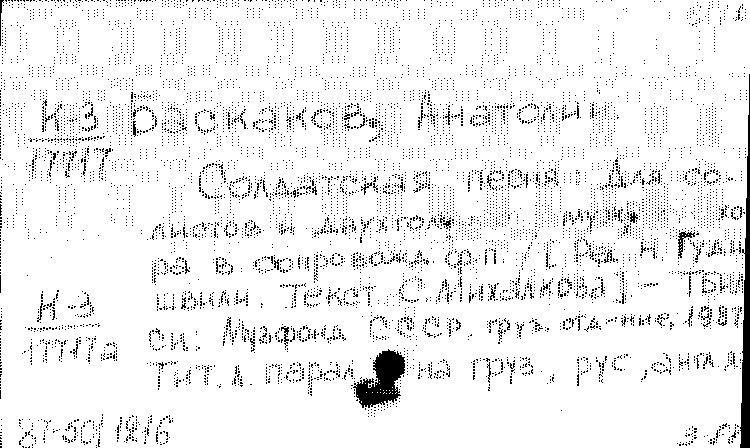 К-3 Баскаков, Анатолий.
17717
Солдатская песня: Для со-
листов и двухгол. муж. хо
ра в сопровожд. ф.п. / [Ред. Н. Гудиа
швили. Текст С. Михалкова]. - Тбил
К-3
17717а
си: Музфонд СССР, груз. отд-ние, 1987
Тит. л. парал. на груз., рус., англ. яз
87-50/1216